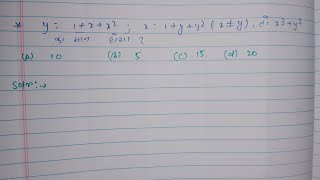 * y = 1+x+x² ; x = 1+y+y² (x ≠ y), तो x³+y³
का मान होगा ?
(A) 10 (B) 5 (C) 15 (d) 20
Solⁿ:→